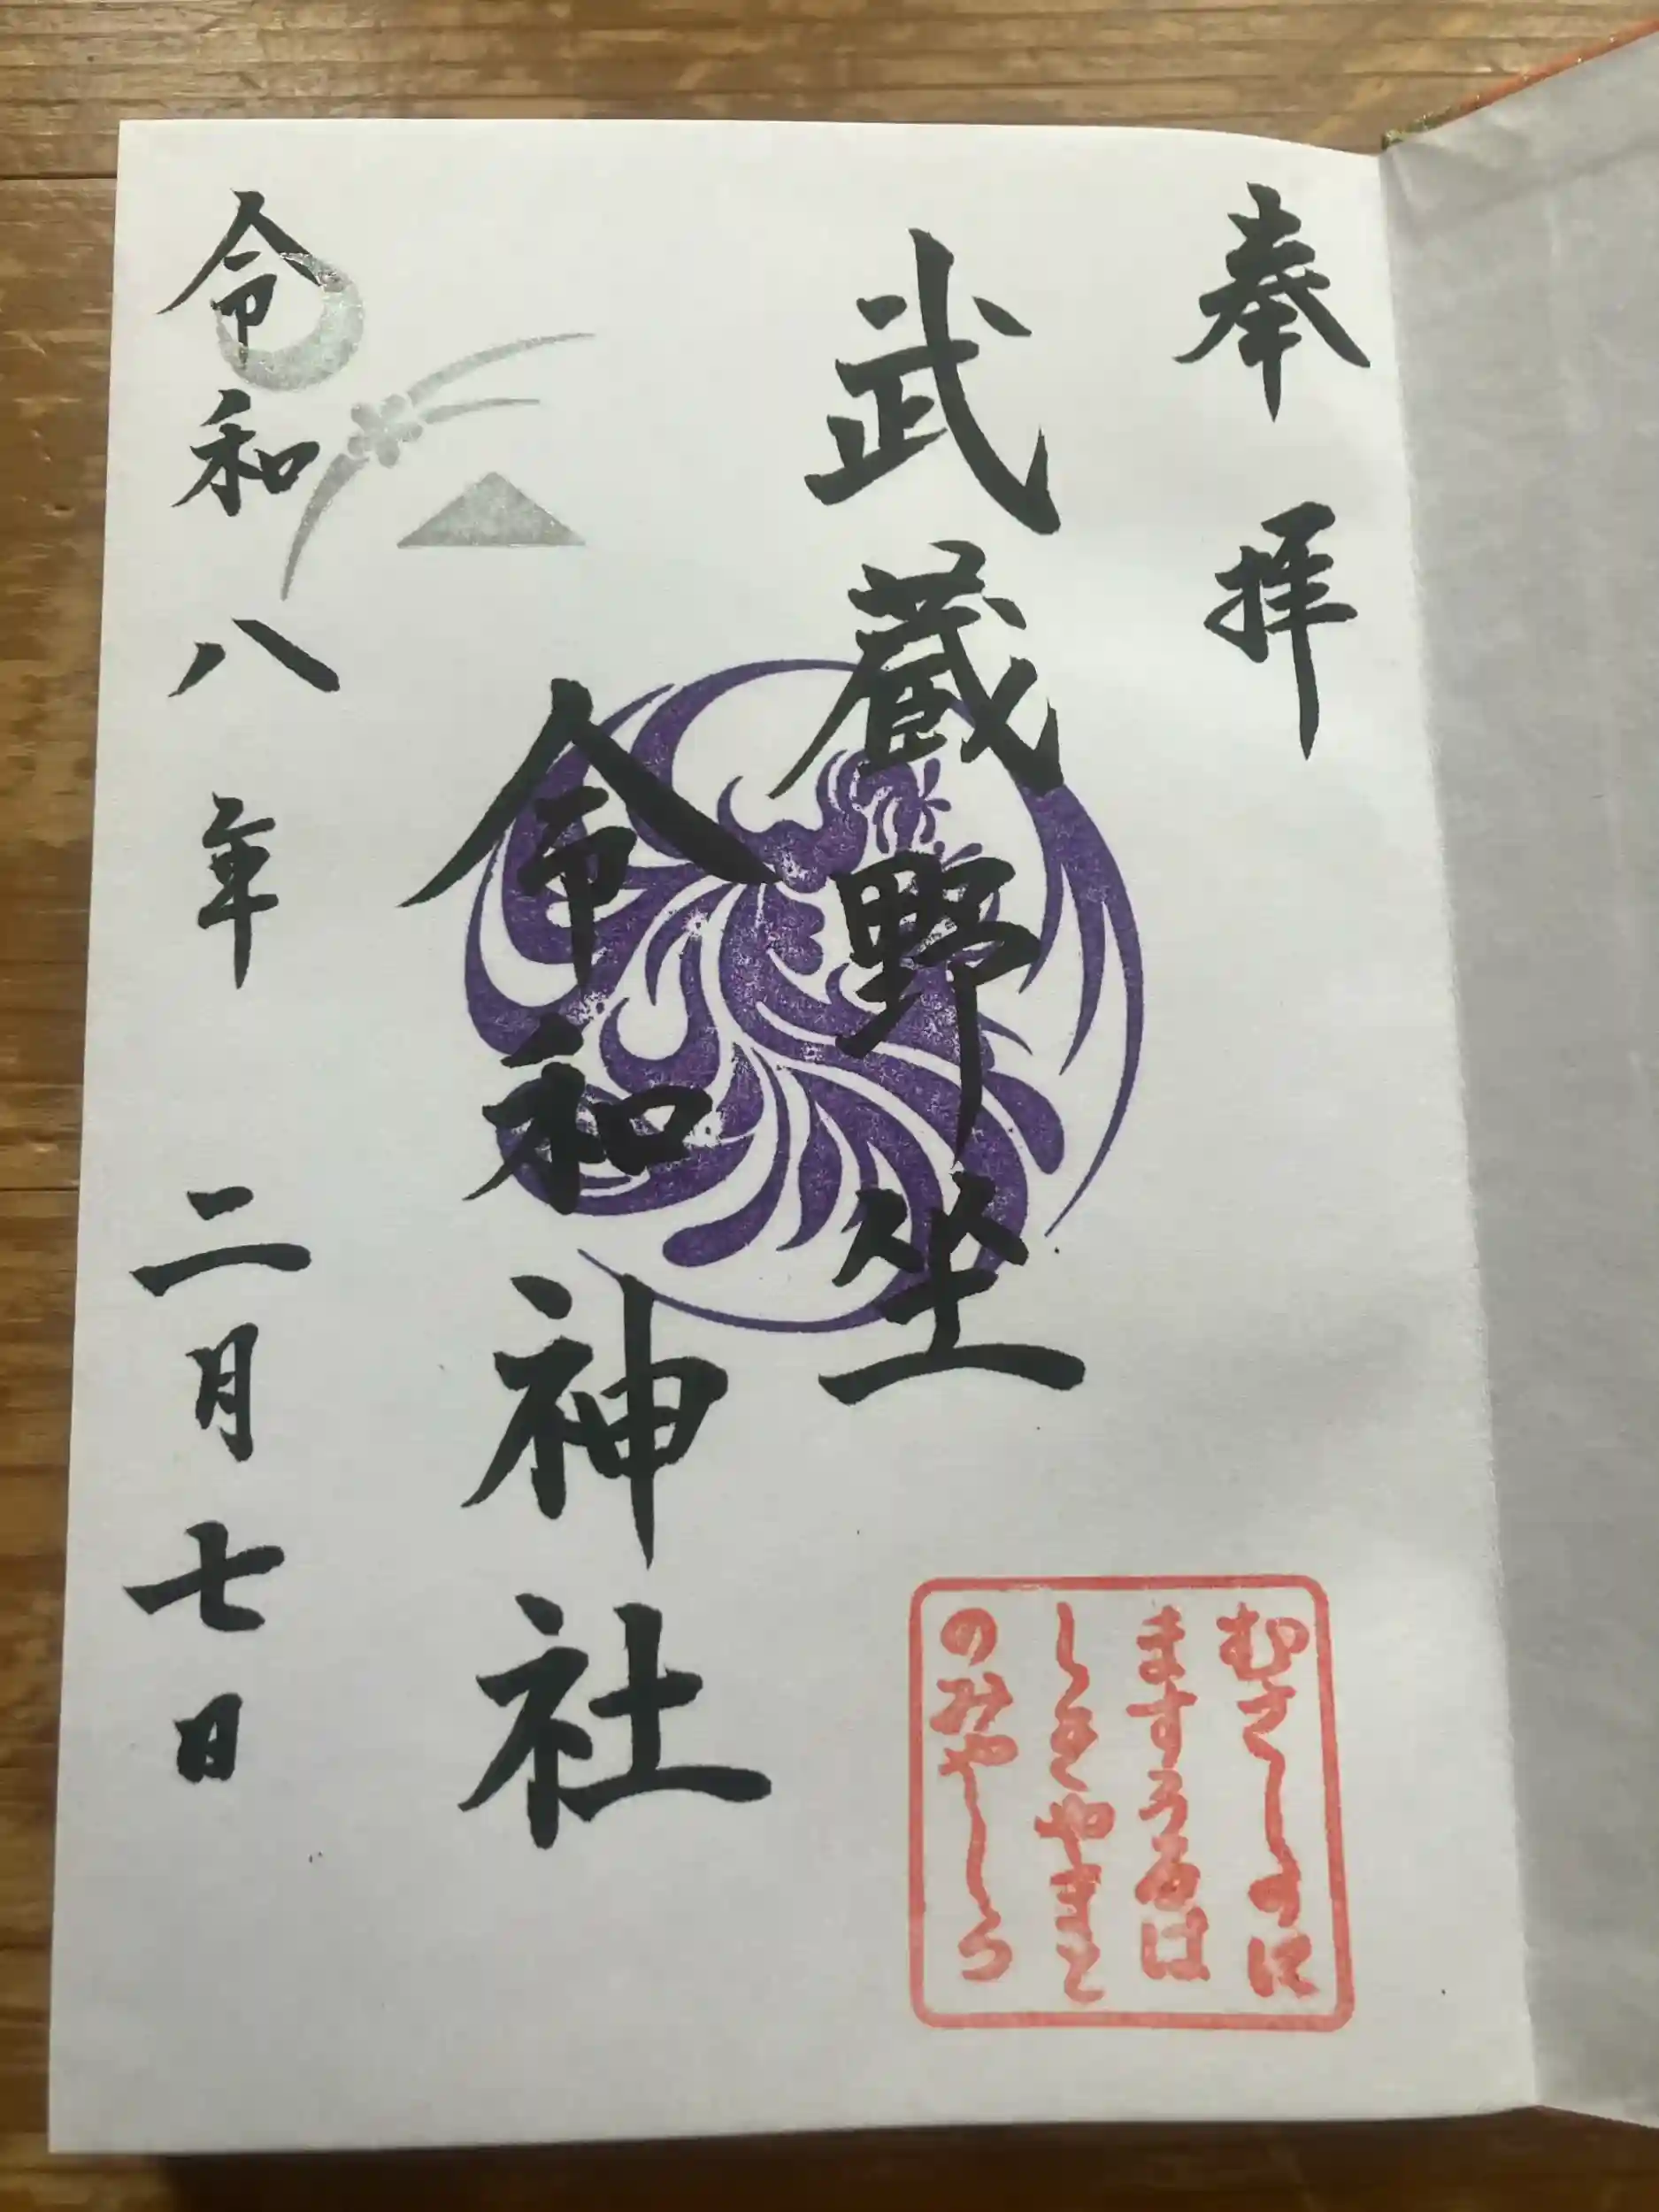 奉拝
武蔵野坐
令和神社
令和八年二月七日
むさしのに
ますうるは
しきやまと
のみやしろ